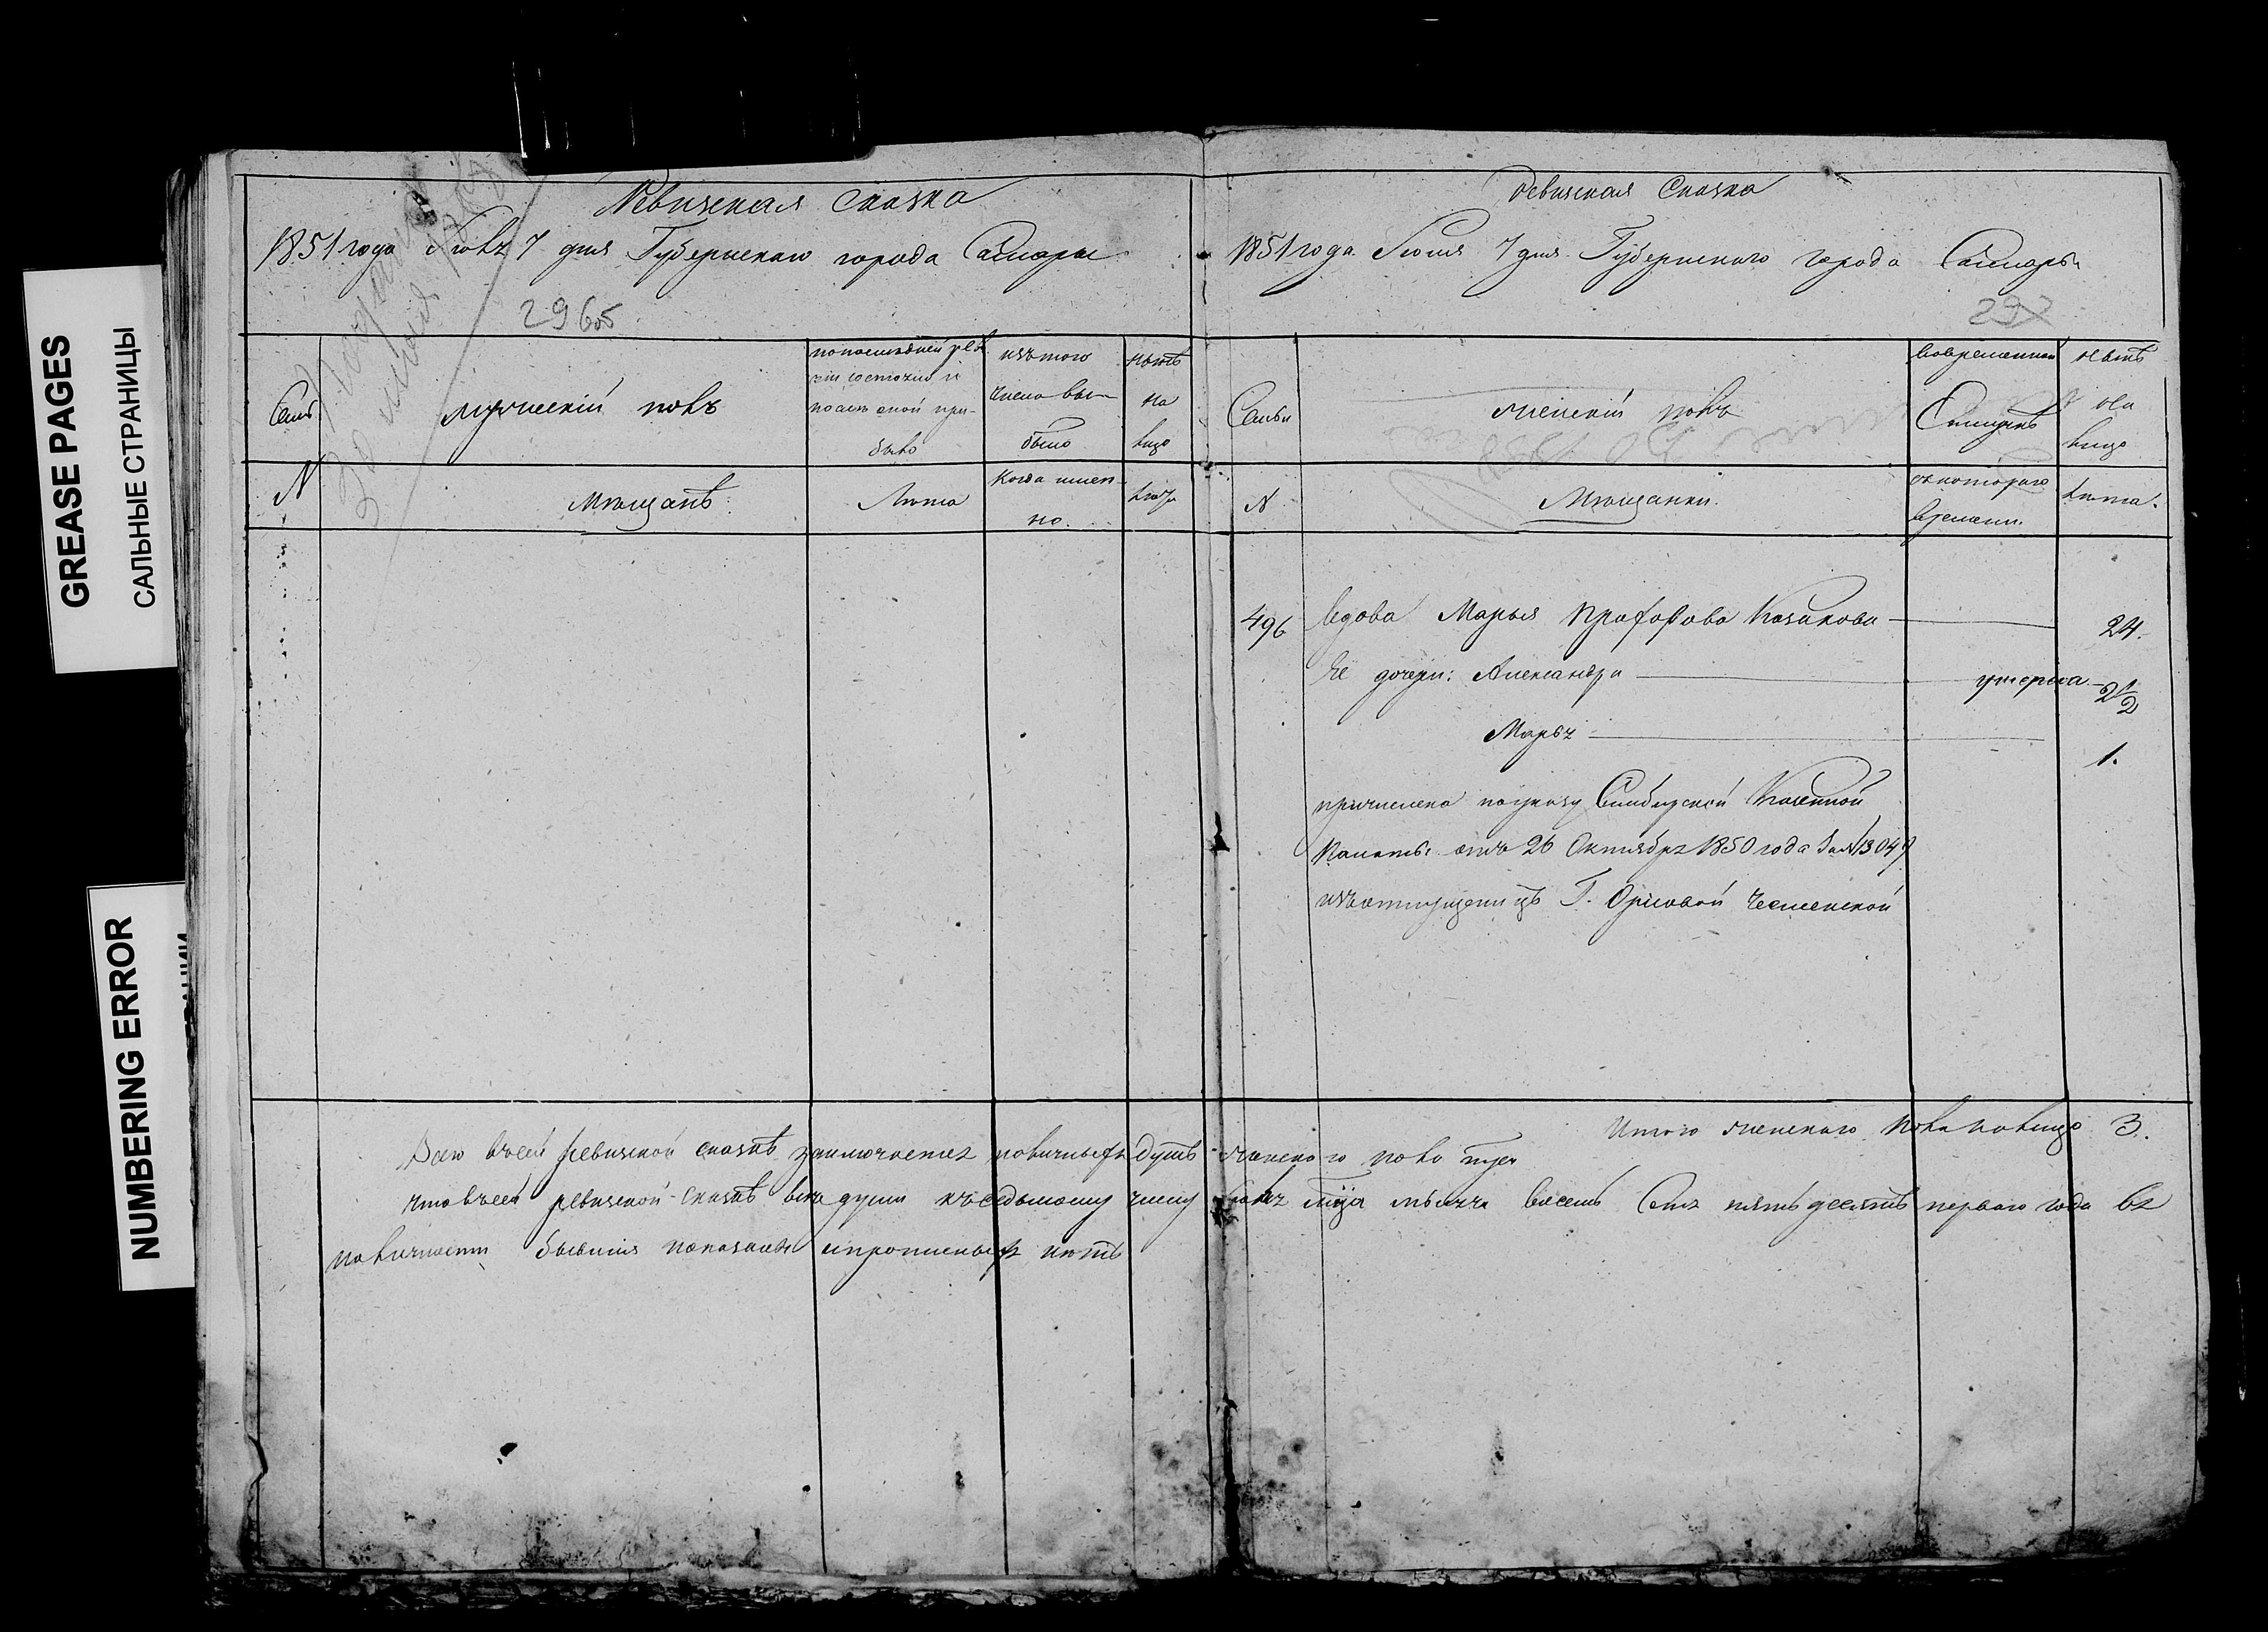 GREASE PAGES
САЛЬНЫЕ СТРАНИЦЫ
NUMBERING ERROR
Ревизская сказка
1851 года Июля 7 дня Губернскаго города Самары
296об
Семьи
мужескій полъ
по последней реви
зіи состояло и
после оной при-
было
изъ того
числа вы-
было
ныне
на
лицо
N
Мещанъ.
Лета
Когда имен-
но.
Лета
Ревизская Сказка
1851 года Июля 7 дня Губернскаго города Самары
297
Семьи
женскій полъ
Во временной
отлучкѣ
ныне
на
лицо
N
Мещанки.
съ котораго
времени.
Лета.
496 Вдова Марья Прохорова Казакова 24.
Ее дочери: Александра умерла 2 1/2
Марья 1.
причислена по указу Симбирской Казенной
Палаты отъ 26 Октября 1850 года за N 13047
изъ отпущеницъ Г. Орловой Чесменской
Итого женскаго пола налицо 3.
Всего в сей ревизской сказкѣ заключается наличныхъ душъ женского пола три
что въ сей ревизской сказкѣ все души къ седьмому числу Июля тысяча восемь сотъ пятьдесятъ перваго года въ
наличности бывшия показаны и прописныхъ нѣтъ